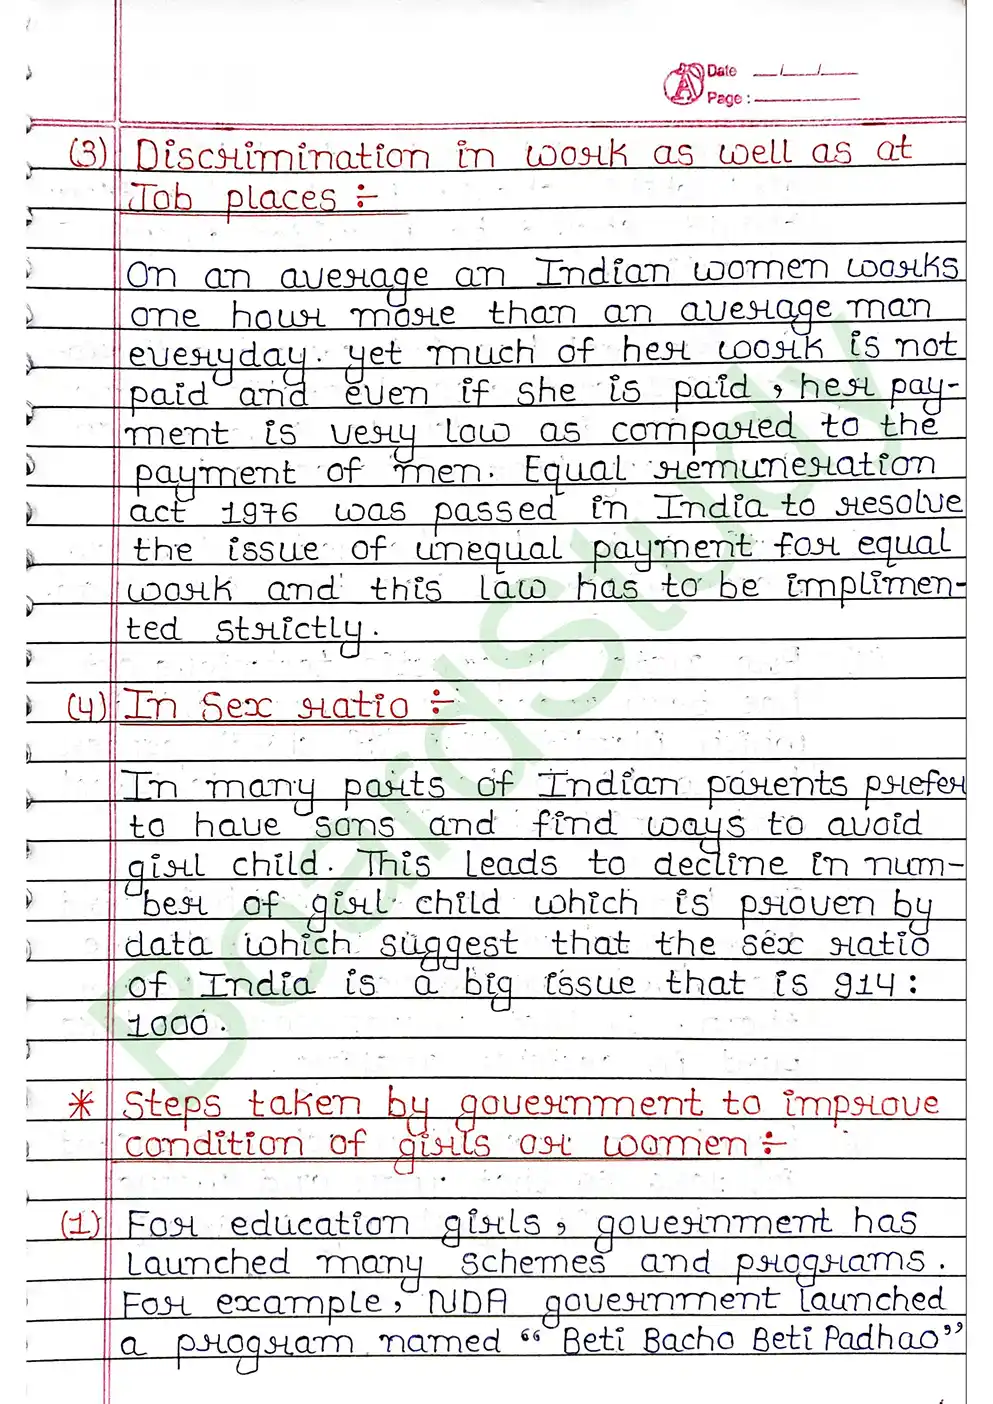 Date __/__/__
Page : ______
(3) Discrimination in work as well as at
Job places :-
On an average an Indian women works
one hour more than an average man
everyday. yet much of her work is not
paid and even if she is paid, her pay-
ment is very low as compared to the
payment of men. Equal remuneration
act 1976 was passed in India to resolve
the issue of unequal payment for equal
work and this law has to be implimen-
ted strictly.
(4) In Sex ratio :-
In many parts of Indian parents prefer
to have sons and find ways to avoid
girl child. This leads to decline in num-
ber of girl child which is proven by
data which suggest that the sex ratio
of India is a big issue that is 914 :
1000.
* Steps taken by government to improve
condition of girls or women :-
(1) For education girls, government has
launched many schemes and programs.
For example, NDA government launched
a program named “ Beti Bacho Beti Padhao”
BoardStudy